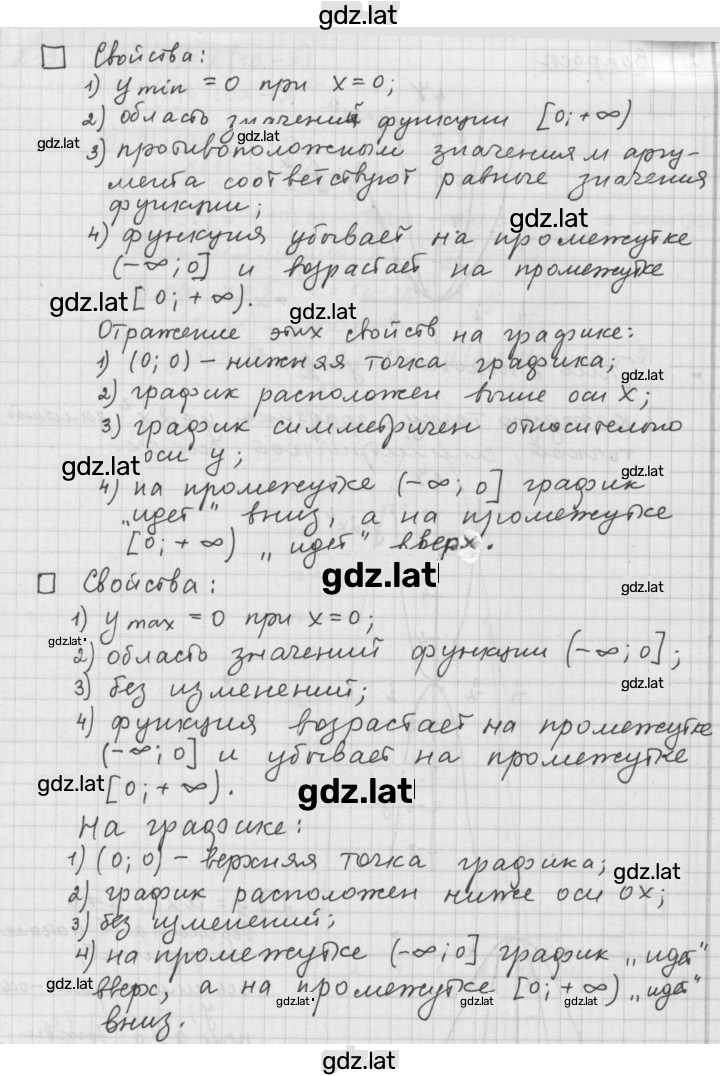 gdz.lat
□ Свойства:
1) y min = 0 при x=0;
2) область значений функции [0;+∞)
gdz.lat
gdz.lat
3) противоположным значениям аргу-
мента соответствуют равные значения
функции;
gdz.lat
4) функция убывает на промежутке
(-∞;0] и возрастает на промежутке
gdz.lat [0;+∞).
gdz.lat
Отражение этих свойств на графике:
1) (0;0) – нижняя точка графика;
gdz.lat
2) график расположен выше оси X;
3) график симметричен относительно
gdz.lat оси y;
gdz.lat
4) на промежутке (-∞;0] график
„идет" вниз, а на промежутке
[0;+∞) „идет" вверх.
gdz.lat
□ Свойства:
gdz.lat
1) y max = 0 при x=0;
gdz.lat
2) область значений функции (-∞;0];
3) без изменений;
gdz.lat
4) функция возрастает на промежутке
(-∞;0] и убывает на промежутке
gdz.lat [0;+∞).
gdz.lat
На графике:
1) (0;0) – верхняя точка графика;
gdz.lat
2) график расположен ниже оси OX;
3) без изменений;
4) на промежутке (-∞;0] график „идет"
gdz.lat вверх, а на промежутке [0;+∞) „идет"
gdz.lat gdz.lat gdz.lat
вниз.
gdz.lat